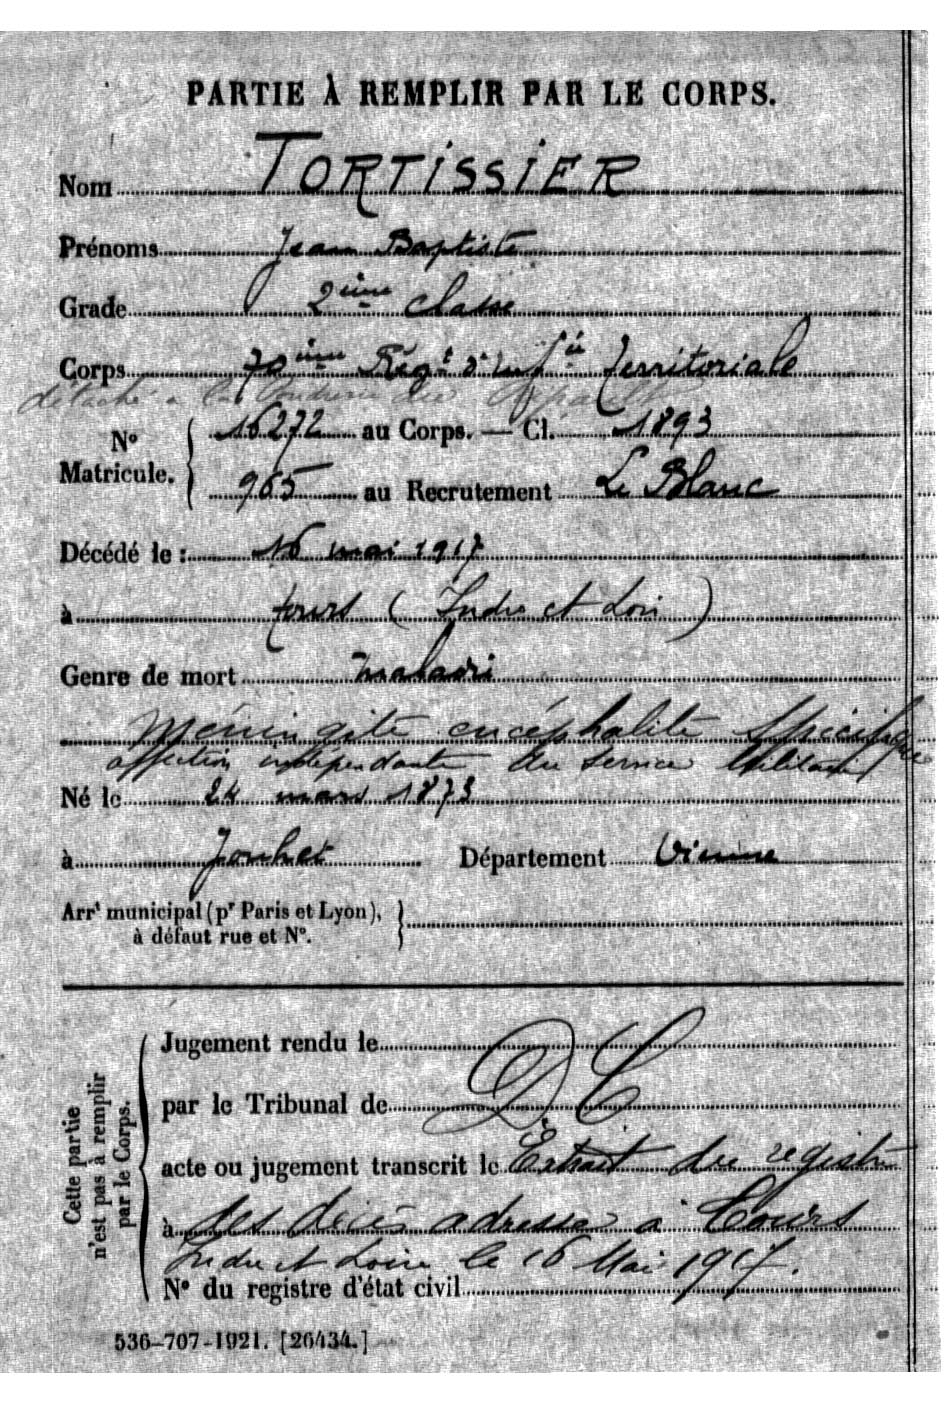 PARTIE À REMPLIR PAR LE CORPS.
Nom TORTISSIER
Prénoms Jean Baptiste
Grade 2ième classe
Corps 70ième Régt d'Infie territoriale
détaché à la Poudrerie du Ripault
No Matricule. 16272 au Corps. — Cl. 1893
965 au Recrutement Le Blanc
Décédé le : 16 mai 1917
à tours (Indre et Loire)
Genre de mort maladie
Méningite encéphalite spécifique
affection indépendante du service Militaire
Né le 24 mars 1873
à Jouhet Département Vienne
Arrt municipal (pr Paris et Lyon),
à défaut rue et No.
Cette partie
n'est pas à remplir
par le Corps.
Jugement rendu le
par le Tribunal de D C
acte ou jugement transcrit le Extrait du registre
à des décès adressé à Tours
Indre et Loire le 16 Mai 1917.
No du registre d'état civil
536-707-1921. [26434.]